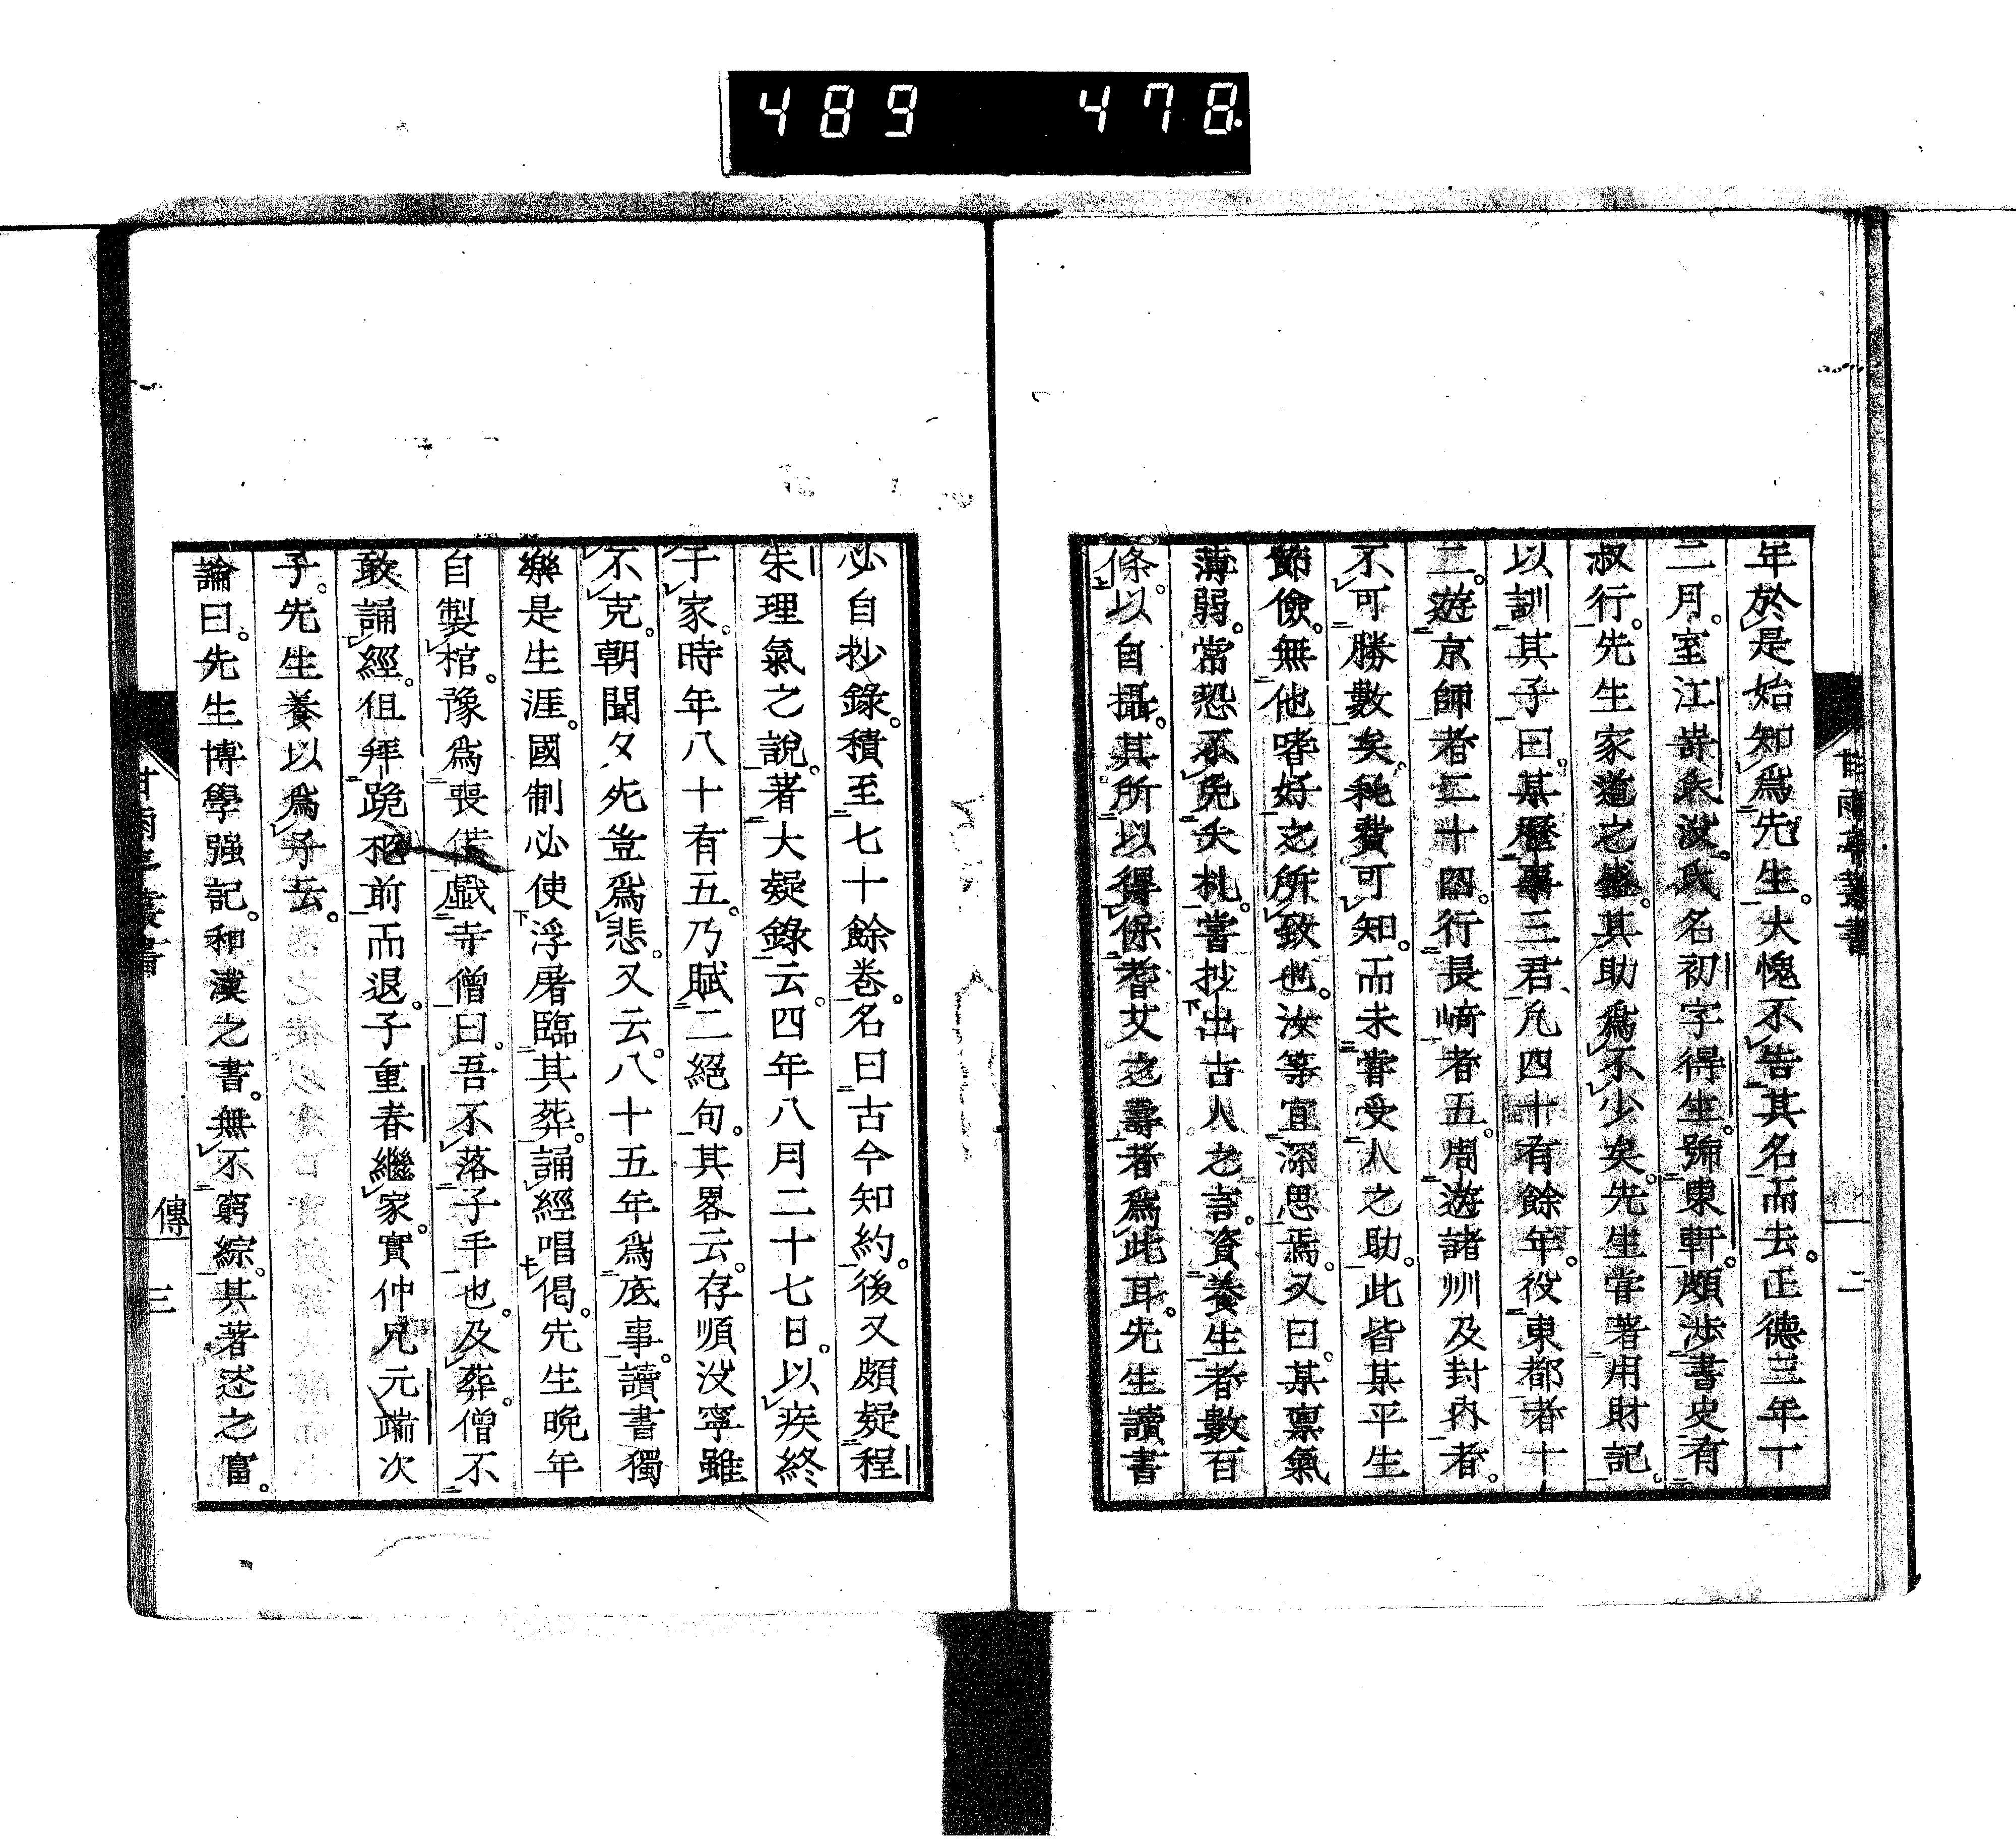 489 478
年於是始知爲先生。大愧不告其名而去。正德三年十
二月。室江崎氏沒。氏名初字得生。號東軒。頗涉書史有
淑行。先生家道之盛。其助爲不少矣。先生嘗著用財記。
以訓其子曰。某歷事三君、凡四十有餘年。役東都者十
二。遊京師者二十四。行長崎者五。周遊諸州及封内者。
不可勝數矣。秏費可知。而未嘗受人之助。此皆某平生
節儉。無他嗜好之所致也。汝等宜深思焉。又曰。某禀氣
薄弱。常恐不免夭札。嘗抄出古人之言。資養生者數百
條。以自攝。其所以得保耆艾之壽者。爲此耳。先生讀書
甘雨亭叢書
二
必自抄錄。積至七十餘卷。名曰古今知約。後又頗疑程
朱理氣之說。著大疑錄云。四年八月二十七日。以疾終
于家。時年八十有五。乃賦二絕句。其畧云。存順沒寧雖
不克。朝聞夕死豈爲悲。又云。八十五年爲底事。讀書獨
樂是生涯。國制必使浮屠臨其葬。誦經唱偈。先生晚年
自製棺。豫爲喪備。戯寺僧曰。吾不落子手也。及葬。僧不
敢誦經。徂拜跪柩前而退。子重春繼家。實仲兄元端次
子。先生養以爲子云。
論曰。先生博學强記。和漢之書。無不窮綜。其著述之富。
甘雨亭叢書
傳
三